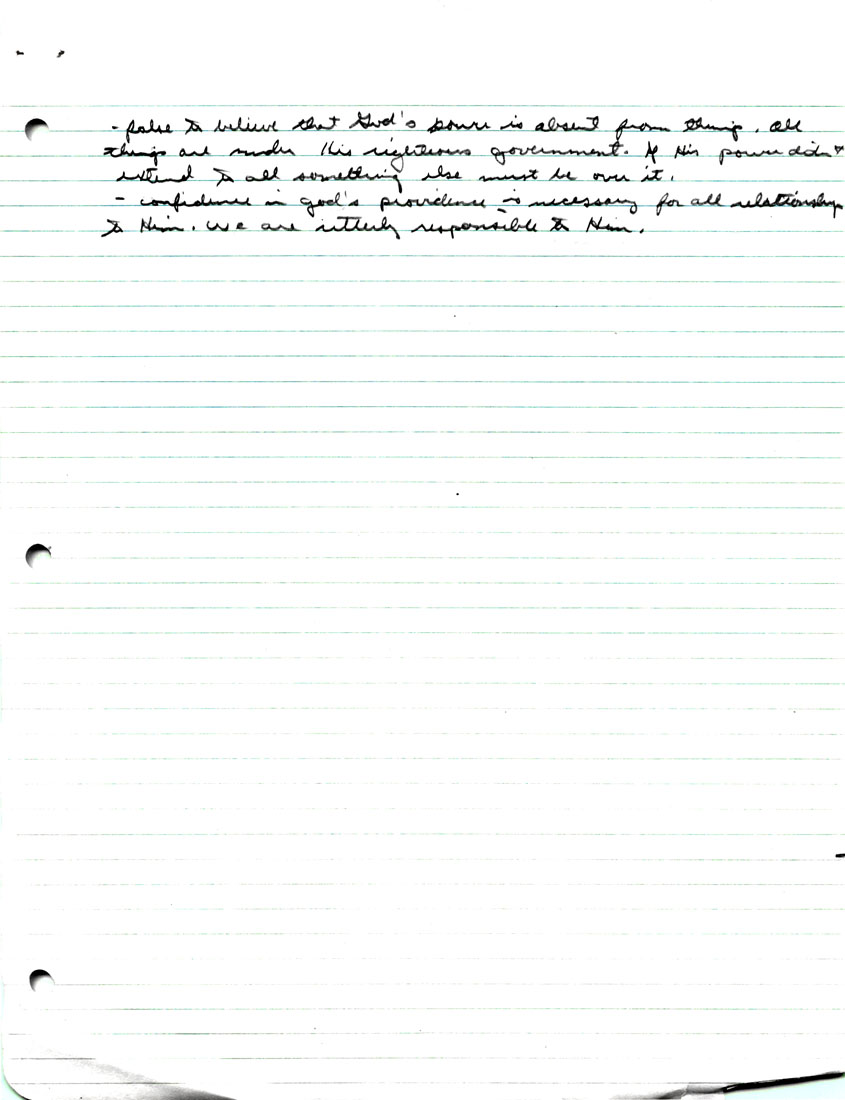 - false to believe that God's power is absent from things. All
things are under His righteous government. If His power didn't
extend to all something else must be over it.
- confidence in god's providence is necessary for all relationship
to Him. We are utterly responsible to Him.